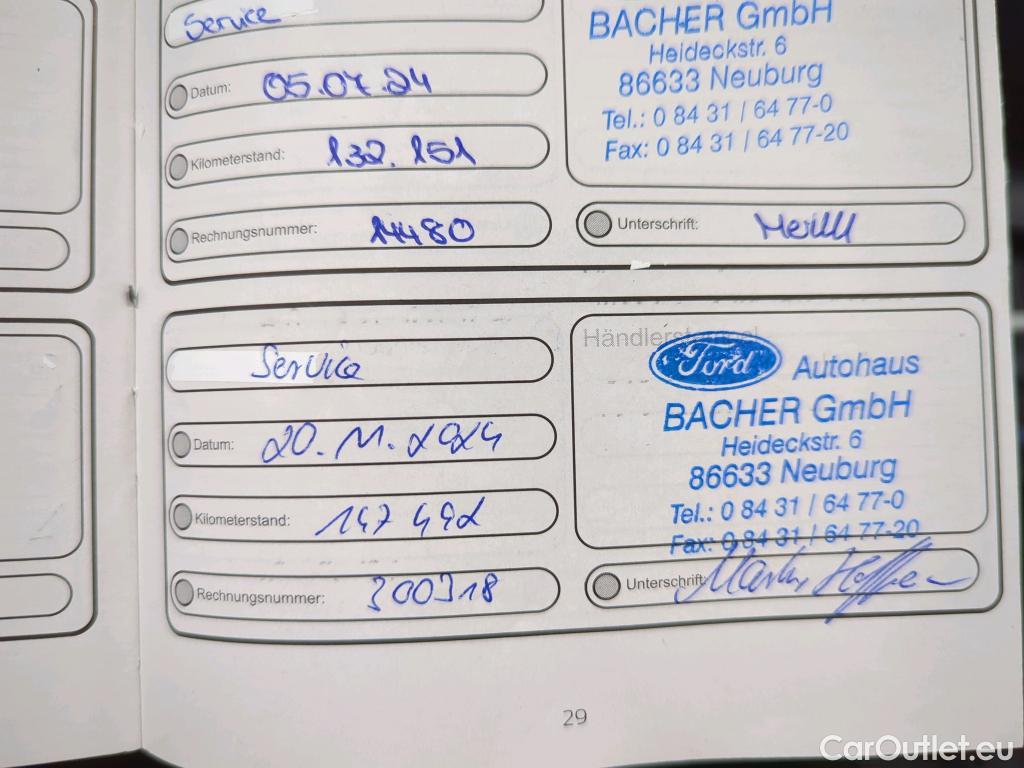 Service
BACHER GmbH
Heideckstr. 6
86633 Neuburg
Tel.: 0 84 31 / 64 77-0
Fax: 0 84 31 / 64 77-20
Datum: 05.07.24
Kilometerstand: 132.151
Rechnungsnummer: 14480
Unterschrift:
Service
Datum: 20.11.2024
Kilometerstand: 147 492
Rechnungsnummer: 300318
Ford Autohaus
BACHER GmbH
Heideckstr. 6
86633 Neuburg
Tel.: 0 84 31 / 64 77-0
Fax: 0 84 31 / 64 77-20
Unterschrift:
29
CarOutlet.eu